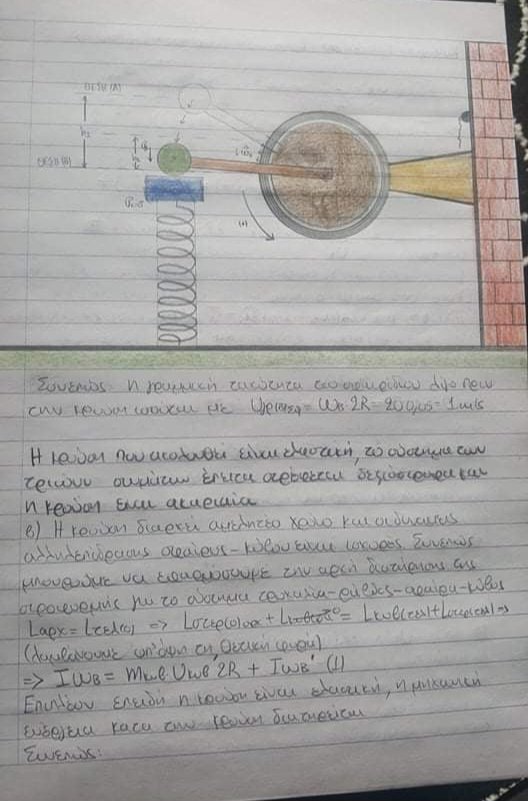 ΘΕΣΗ (Α)
h₂
ΘΕΣΗ (Β)
(+)
Συνεπώς η γραμμική ταχύτητα του σφαιριδίου λίγο πριν
την κρούση ισούται με = ω_B·2R = = 1 m/s
Η κρούση που ακολουθεί είναι ελαστική, το σύστημα των
τριών σωμάτων έπειτα στρέφεται δεξιόστροφα και
η κρούση είναι ακαριαία
β) Η κρούση διαρκεί αμελητέο χρόνο και οι δυνάμεις
αλληλεπίδρασης σφαίρας - κύβου είναι ισχυρές. Συνεπώς
μπορούμε να εφαρμόσουμε την αρχή διατήρησης της
στροφορμής για το σύστημα τροχαλία - ράβδος - σφαίρα - κύβος
Lαρχ = Lτελ(ο) =>
(λαμβάνουμε υπόψη τη θετική φορά)
=> Iω_B = m_κυβ U_κυβ 2R + Iω_B' (1)
Επιπλέον επειδή η κρούση είναι ελαστική, η μηχανική
ενέργεια κατα την κρούση διατηρείται
Συνεπώς: